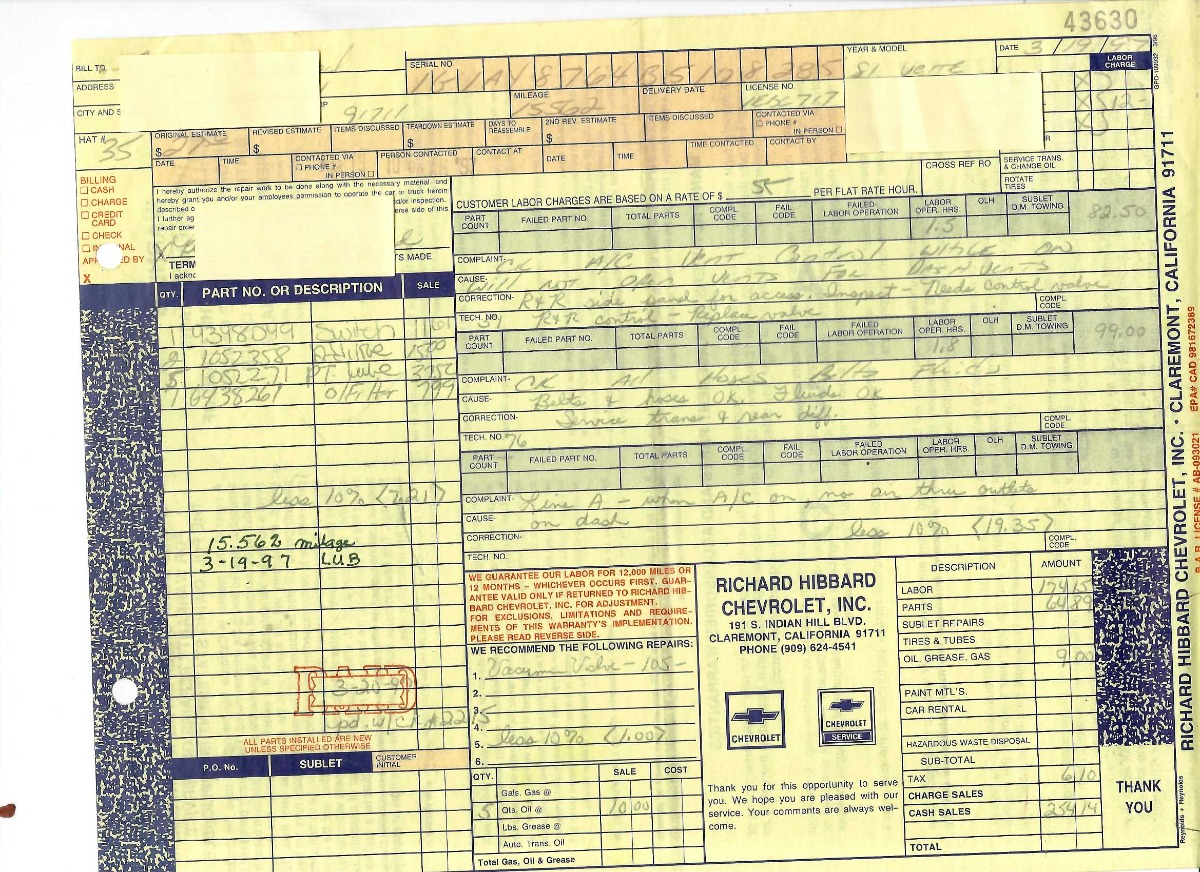 43630
BILL TO
ADDRESS
CITY AND S
SERIAL NO.
YEAR & MODEL
DATE 3/19/97
LABOR CHARGE
GPD-UN232 3/96
81 VETTE
MILEAGE
15562
DELIVERY DATE
LICENSE NO.
91711
12-
HAT #
35
ORIGINAL ESTIMATE
$
REVISED ESTIMATE
$
ITEMS DISCUSSED
TEARDOWN ESTIMATE
$
DAYS TO REASSEMBLE
2ND REV. ESTIMATE
$
ITEMS DISCUSSED
CONTACTED VIA
PHONE #
IN PERSON
DATE
TIME
CONTACTED VIA
PHONE #
IN PERSON
PERSON CONTACTED
CONTACT AT
DATE
TIME
TIME CONTACTED
CONTACT BY
CROSS REF RO
SERVICE TRANS. & CHANGE OIL
ROTATE TIRES
BILLING
CASH
CHARGE
CREDIT CARD
CHECK
I hereby authorize the repair work to be done along with the necessary material, and
hereby grant you and/or your employees permission to operate the car or truck herein
described o
nd/or inspection.
I further ag
erse side of this
repair order
X
TERM
TS MADE
I ackno
X
CUSTOMER LABOR CHARGES ARE BASED ON A RATE OF $ 55 PER FLAT RATE HOUR.
PART COUNT
FAILED PART NO.
TOTAL PARTS
COMPL CODE
FAIL CODE
FAILED LABOR OPERATION
LABOR OPER. HRS
OLH
SUBLET D.M. TOWING
1.5
82.50
COMPLAINT- CK A/C Vent Control While on
CAUSE- Will not open vents for Dash Vents
CORRECTION- R&R side pand for access. Inspect - Needs control valve
COMPL. CODE
TECH. NO. R&R control - Replace valve
PART COUNT
FAILED PART NO.
TOTAL PARTS
COMPL CODE
FAIL CODE
FAILED LABOR OPERATION
LABOR OPER. HRS.
OLH
SUBLET D.M. TOWING
1.8
99.00
COMPLAINT- CK All Hoses Belts Fluids
CAUSE- Belts & hoses OK. Fluids OK
CORRECTION- Service trans & rear diff.
COMPL. CODE
TECH. NO. 76
PART COUNT
FAILED PART NO.
TOTAL PARTS
COMPL CODE
FAIL CODE
FAILED LABOR OPERATION
LABOR OPER. HRS
OLH
SUBLET D.M. TOWING
COMPLAINT- Line A - when A/C on, no air thru outlets
CAUSE- on dash
less 10% (19.35)
CORRECTION-
COMPL. CODE
TECH. NO.
QTY.
PART NO. OR DESCRIPTION
SALE
1 9348049 Switch 1161
2 1052358 Additive 1500
5 1052271 PT Lube 3750
1 6438261 O/Filter 799
less 10% (7.21)
15.562 milage
3-19-97 LUB
PAID
3-20-97
ALL PARTS INSTALLED ARE NEW
UNLESS SPECIFIED OTHERWISE
P.O. No.
SUBLET
CUSTOMER INITIAL
WE GUARANTEE OUR LABOR FOR 12,000 MILES OR
12 MONTHS - WHICHEVER OCCURS FIRST. GUAR-
ANTEE VALID ONLY IF RETURNED TO RICHARD HIB-
BARD CHEVROLET, INC. FOR ADJUSTMENT.
FOR EXCLUSIONS, LIMITATIONS AND REQUIRE-
MENTS OF THIS WARRANTY'S IMPLEMENTATION.
PLEASE READ REVERSE SIDE.
WE RECOMMEND THE FOLLOWING REPAIRS:
1. Vacuum Valve - 105-
2.
3.
4.
5. less 10% (1.00)
6.
QTY.
SALE
COST
Gals. Gas @
5 Qts. Oil @ 10 00
Lbs. Grease @
Auto. Trans. Oil
Total Gas, Oil & Grease
RICHARD HIBBARD
CHEVROLET, INC.
191 S. INDIAN HILL BLVD.
CLAREMONT, CALIFORNIA 91711
PHONE (909) 624-4541
CHEVROLET
CHEVROLET
SERVICE
Thank you for this opportunity to serve
you. We hope you are pleased with our
service. Your comments are always wel-
come.
DESCRIPTION
AMOUNT
LABOR 174 15
PARTS 64 89
SUBLET REPAIRS
TIRES & TUBES
OIL, GREASE, GAS 9 00
PAINT MTL'S.
CAR RENTAL
HAZARDOUS WASTE DISPOSAL
SUB-TOTAL
TAX 6 10
CHARGE SALES
CASH SALES 254 14
TOTAL
THANK
YOU
RICHARD HIBBARD CHEVROLET, INC. • CLAREMONT, CALIFORNIA 91711
B.A.R. LICENSE # AB-093021 EPA# CAD 981672389
Reynolds + Reynolds